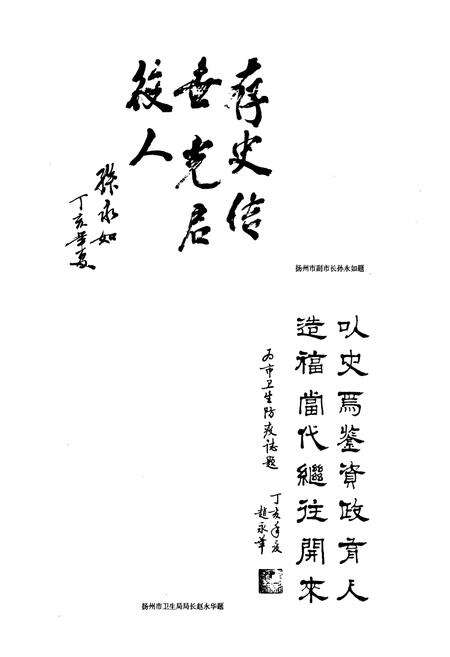 存史信
世光启
後人
孫永如
丁亥年夏
扬州市副市长孙永如题
以史爲鉴資政育人
造福當代繼往開來
为市卫生防疫誌题
丁亥年夏
趙永華
扬州市卫生局局长赵永华题